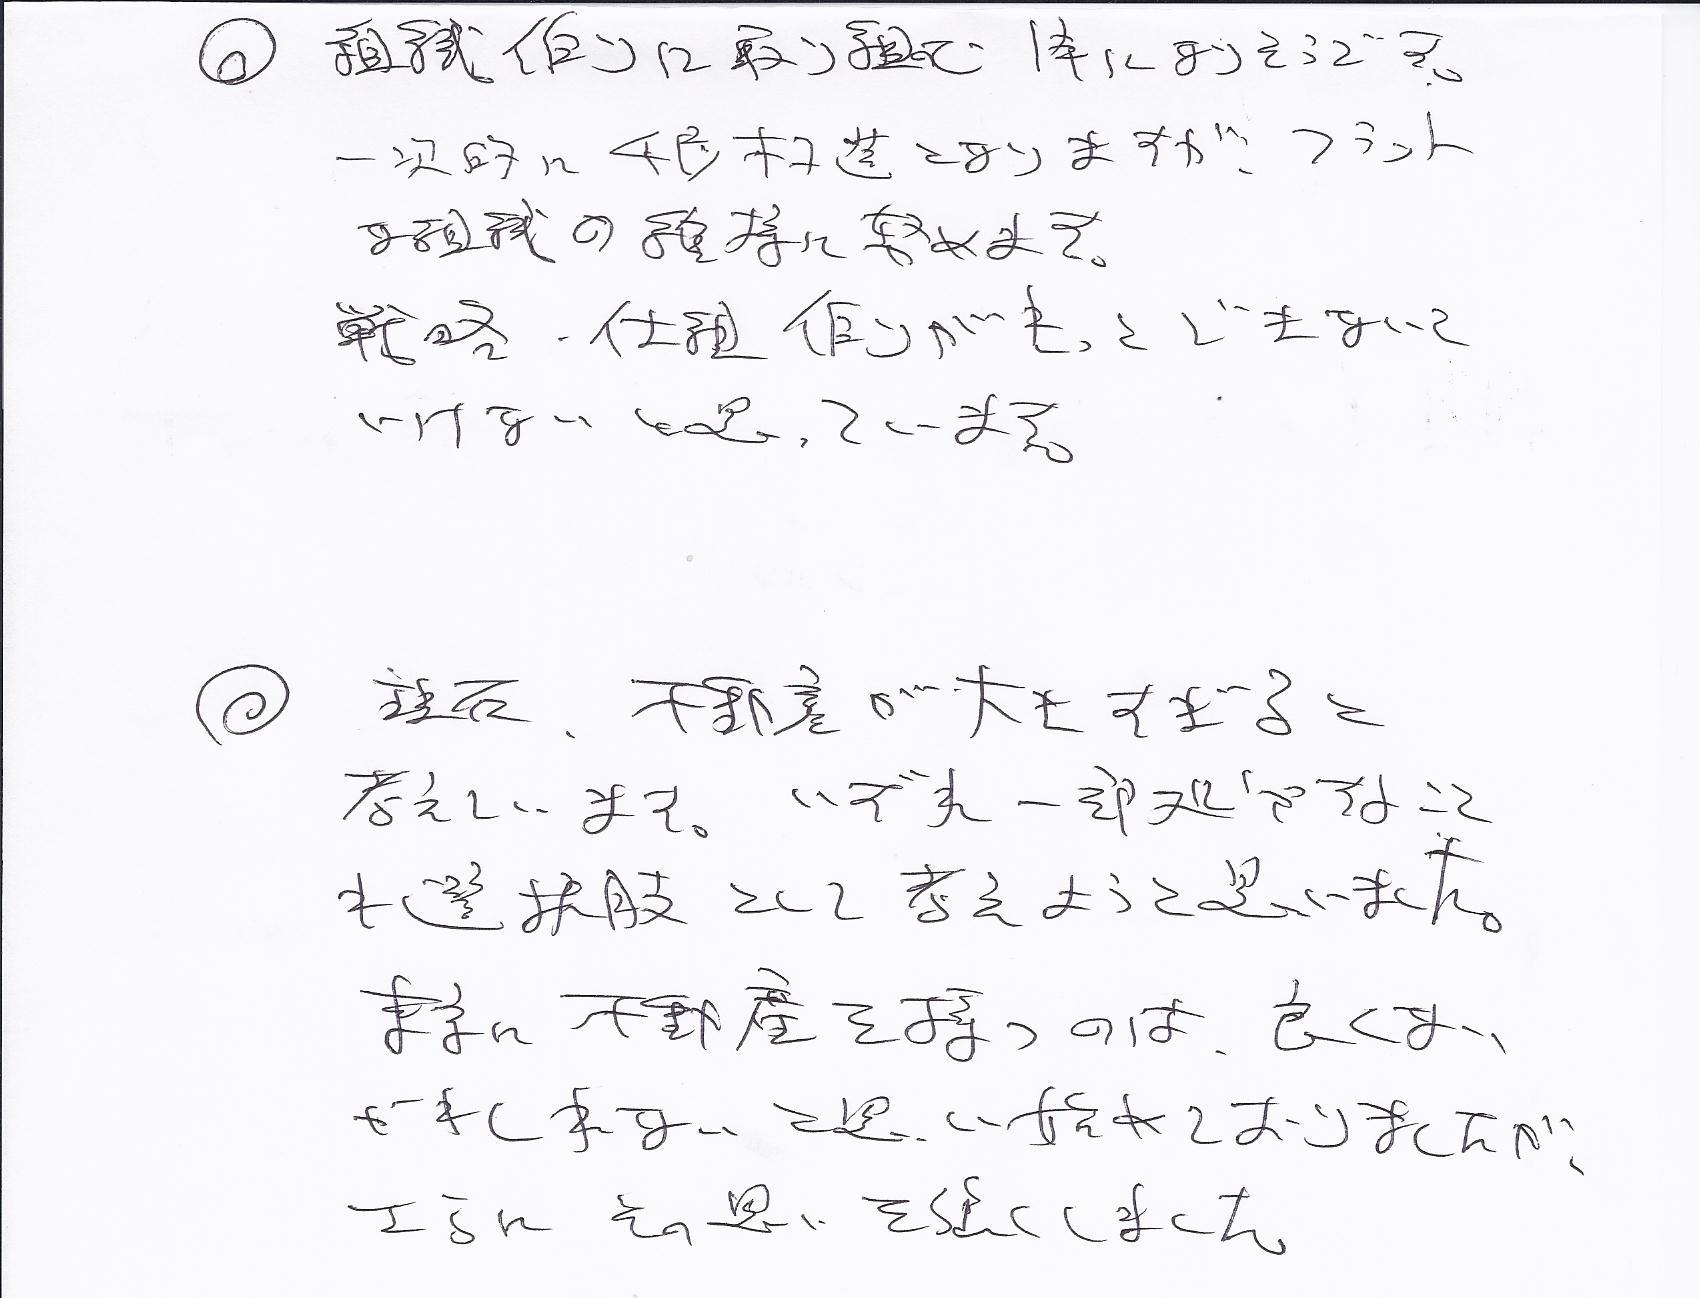 組織作りに取り組む 体になりそうです。
一次的に 構造となりますが、フラット
な組織の維持に努めます。
戦略・仕組作りがもっとできないと
いけないと思っています。
現在、不動産が大きすぎると
考えています。いずれ一部処分すること
も選択肢として考えようと思いました。
事業に不動産を持つのは、良くない
かもしれないと思い始めておりましたが、
さらにその思いを強くしました。